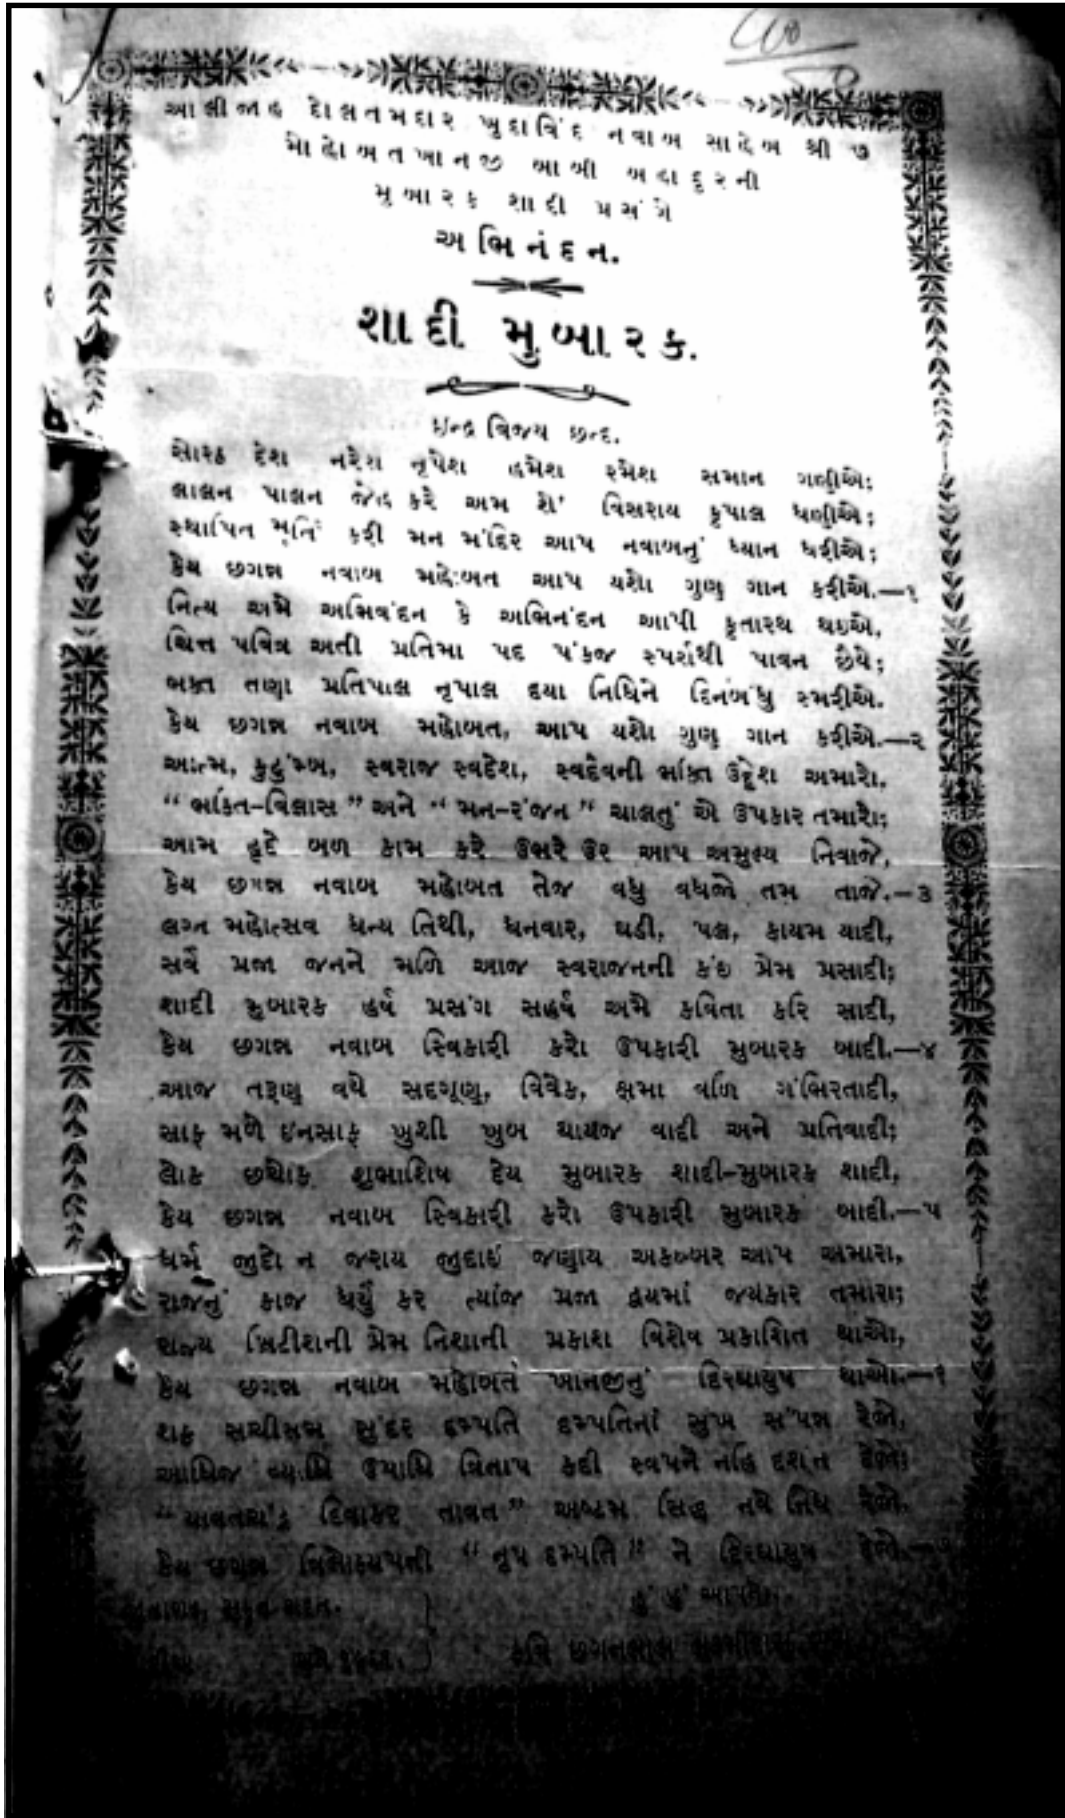 આલીજાહ દોલતમદાર ખુદાવિંદ નવાબ સાહેબ શ્રી ૭
મોહોબતખાનજી બાબી બહાદુરની
મુબારક શાદી પ્રસંગે
અભિનંદન.
શાદી મુબારક.
ઇન્દ્ર વિજય છન્દ.
સોરઠ દેશ નરેશ નૃપેશ હમેશ રમેશ સમાન ગણીએ;
લાલન પાલન જેહ કરે અમ શેં વિસરાય કૃપાલ ધણીએ;
સ્થાપિત મૂર્તિ કરી મન મંદિર આપ નવાબનું ધ્યાન ધરીએ;
કેય છગન્ન નવાબ મહોબત આપ યશો ગુણ ગાન કરીએ.—૧
નિત્ય અમે અભિવંદન કે અભિનંદન આપી કૃતારથ થઇએ,
ચિત્ત પવિત્ર અતી પ્રતિમા પદ પંકજ સ્પર્શથી પાવન છૈયે;
ભક્ત તણા પ્રતિપાલ નૃપાલ દયા નિધિને દિનબંધુ સ્મરીએ.
કેય છગન્ન નવાબ મહોબત, આપ યશો ગુણ ગાન કરીએ.—૨
આત્મ, કુટુંમ્બ, સ્વરાજ સ્વદેશ, સ્વદેવની ભક્તિ ઉદ્દેશ અમારો,
“ભક્તિ-વિલાસ” અને “મન-રંજન” ચાલતું એ ઉપકાર તમારો;
આમ હૃદે બળ કામ કરે ઉભરે ઉર આપ અમુલ્ય નિવાજે,
કેય છગન્ન નવાબ મહોબત તેજ વધુ વધજો તમ તાજે.—૩
લગ્ન મહોત્સવ ધન્ય તિથી, ધનવાર, ઘડી, પલ, કાયમ યાદી,
સર્વે પ્રજા જનને મળિ આજ સ્વરાજનની કંઇ પ્રેમ પ્રસાદી;
શાદી મુબારક હર્ષ પ્રસંગ સહર્ષ અમે કવિતા કરિ સાદી,
કેય છગન્ન નવાબ સ્વિકારી કરો ઉપકારી મુબારક બાદી.—૪
આજ તરૂણ વયે સદગૂણ, વિવેક, ક્ષમા વળિ ગંભિરતાદી,
સાફ મળે ઇનસાફ ખુશી ખુબ થાયજ વાદી અને પ્રતિવાદી;
લોક છયોક શુભાશિષ દેય મુબારક શાદી-મુબારક શાદી,
કેય છગન્ન નવાબ સ્વિકારી કરો ઉપકારી મુબારક બાદી.—૫
ધર્મ જુદો ન જરાય જુદાઇ જણાય અકબ્બર આપ અમારા,
રાજનું કાજ ધર્યું કર ત્યાંજ પ્રજા હ્રયમાં જયકાર તમારા;
રાજ્ય બ્રિટીશની પ્રેમ નિશાની પ્રકાશ વિશેષ પ્રકાશિત થાઓ,
કેય છગન્ન નવાબ મહોબત ખાનજીનું દિરઘાયુષ થાઓ.—૬
સુંદર દમ્પતિ દમ્પતિનાં સુખ સંપન્ન રેજો,
આધિજ વ્યાધિ ઉપાધિ ત્રિતાપ કદી સ્વપને નહિ દર્શન દેજો;
દિવાકર તાવત” અષ્ટમ સિદ્ધ નવે નિધ રેજો.
કેય છગન્ન “નૃપ દમ્પતિ” ને દિરઘાયુષ
હું છું આપનો.
કવિ છગનલાલ